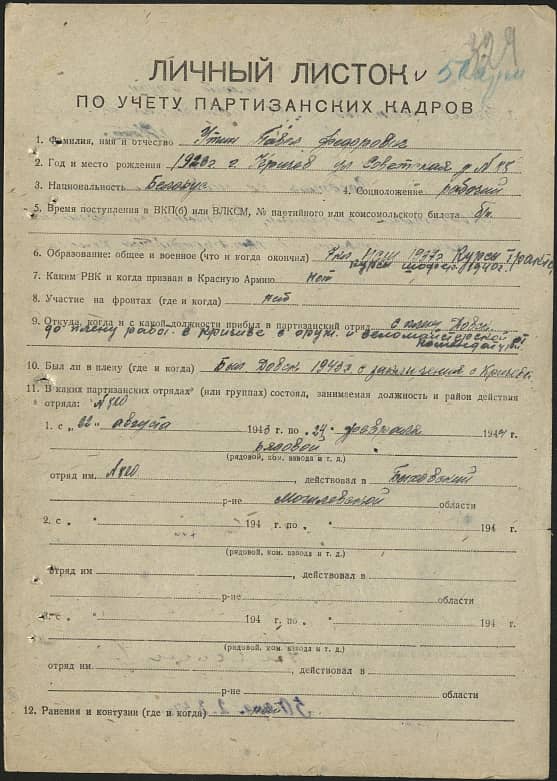 329
ЛИЧНЫЙ ЛИСТОК
ПО УЧЕТУ ПАРТИЗАНСКИХ КАДРОВ
1. Фамилия, имя и отчество Утин Павел Федорович
2. Год и место рождения г. Кричев ул Советская д. N 45
3. Национальность Белорус 4. Соцположение рабочий
5. Время поступления в ВКП(б) или ВЛКСМ, № партийного или комсомольского билета б/п.
6. Образование: общее и военное (что и когда окончил) 1937г Курсы
курсы 1940г.
7. Каким РВК и когда призван в Красную Армию нет
8. Участие на фронтах (где и когда) нет
9. Откуда, когда и с какой должности прибыл в партизанский отряд с плена Довск
до плена работ. в Кричеве в и веломайстерской
10. Был ли в плену (где и когда) Был Довск 1943г с заключения г Кричева
11. В каких партизанских отрядах (или группах) состоял, занимаемая должность и район действия
отряда: №720
1. с „22“ августа 1943 г. по „24“ февраля 1944 г.
рядовой
(рядовой, ком. взвода и т. д.)
отряд им. №720, действовал в Быховский
р-не Могилевской области
2. с „ “ 194 г. по „ “ 194 г.
(рядовой, ком. взвода и т. д.)
отряд им , действовал в
р-не области
3. с „ “ 194 г. по „ “ 194 г.
(рядовой, ком. взвода и т. д.)
отряд им. , действовал в
р-не области
12. Ранения и контузии (где и когда) нет